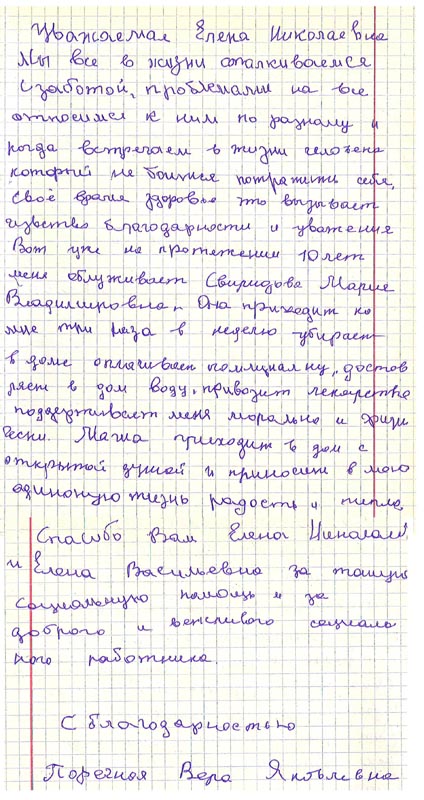 Уважаемая Елена Николаевна
Мы все в жизни сталкиваемся
с заботой, проблемами но все
относимся к ним по разному и
когда встречаем в жизни человека
который не боится потратить себя,
своё время здоровье это вызывает
чувство благодарности и уважения
Вот уже на протяжении 10 лет
меня обслуживает Свиридова Мария
Владимировна. Она приходит ко
мне три раза в неделю убирает
в доме оплачивает коммуналку, достов
ляет в дом воду, привозит лекарства
поддерживает меня морально и физи
чески. Маша приходит в дом с
открытой душой и приносит в мою
одинокую жизнь радость и тепло.
Спасибо Вам Елена Николаевн
и Елена Васильевна за такую
социальную помощь и за
доброго и вежливого социаль
ного работника.
С благодарностью
Поречная Вера Яковлевна